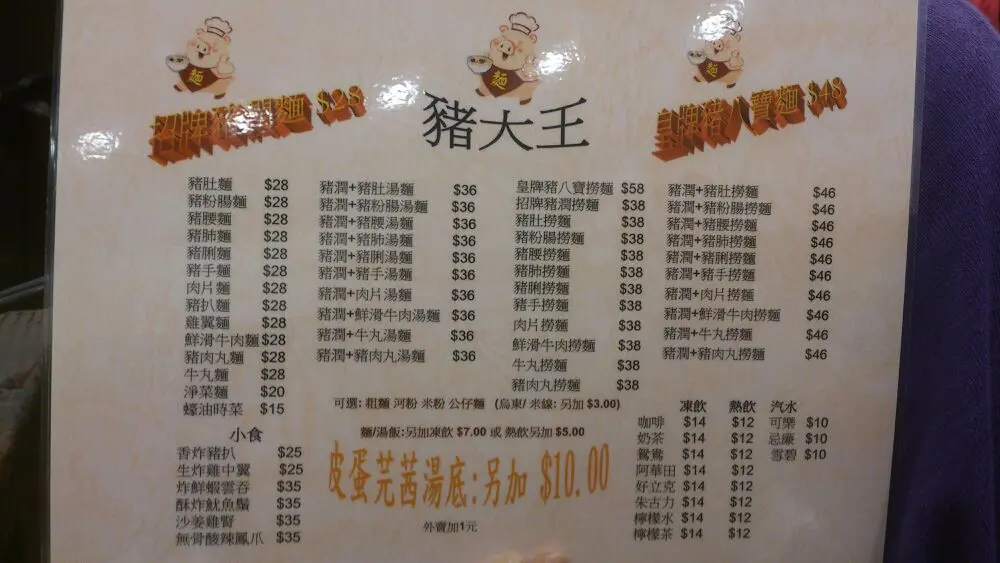 麵 麵 麵
招牌豬潤麵 $28
豬大王
皇牌豬八寶麵 $48
豬肚麵 $28
豬粉腸麵 $28
豬腰麵 $28
豬肺麵 $28
豬脷麵 $28
豬手麵 $28
肉片麵 $28
豬扒麵 $28
雞翼麵 $28
鮮滑牛肉麵 $28
豬肉丸麵 $28
牛丸麵 $28
淨菜麵 $20
蠔油時菜 $15
豬潤+豬肚湯麵 $36
豬潤+豬粉腸湯麵 $36
豬潤+豬腰湯麵 $36
豬潤+豬肺湯麵 $36
豬潤+豬脷湯麵 $36
豬潤+豬手湯麵 $36
豬潤+肉片湯麵 $36
豬潤+鮮滑牛肉湯麵 $36
豬潤+牛丸湯麵 $36
豬潤+豬肉丸湯麵 $36
皇牌豬八寶撈麵 $58
招牌豬潤撈麵 $38
豬肚撈麵 $38
豬粉腸撈麵 $38
豬腰撈麵 $38
豬肺撈麵 $38
豬脷撈麵 $38
豬手撈麵 $38
肉片撈麵 $38
鮮滑牛肉撈麵 $38
牛丸撈麵 $38
豬肉丸撈麵 $38
豬潤+豬肚撈麵 $46
豬潤+豬粉腸撈麵 $46
豬潤+豬腰撈麵 $46
豬潤+豬肺撈麵 $46
豬潤+豬脷撈麵 $46
豬潤+豬手撈麵 $46
豬潤+肉片撈麵 $46
豬潤+鮮滑牛肉撈麵 $46
豬潤+牛丸撈麵 $46
豬潤+豬肉丸撈麵 $46
可選: 粗麵 河粉 米粉 公仔麵 (烏東/ 米線: 另加 $3.00)
麵/湯飯:另加凍飲 $7.00 或 熱飲另加 $5.00
皮蛋芫茜湯底:另加 $10.00
外賣加1元
小食
香炸豬扒 $25
生炸雞中翼 $25
炸鮮蝦雲吞 $35
酥炸魷魚鬚 $35
沙姜雞腎 $35
無骨酸辣鳳爪 $35
凍飲 熱飲 汽水
咖啡 $14 $12 可樂 $10
奶茶 $14 $12 忌廉 $10
鴛鴦 $14 $12 雪碧 $10
阿華田 $14 $12
好立克 $14 $12
朱古力 $14 $12
檸檬水 $14 $12
檸檬茶 $14 $12